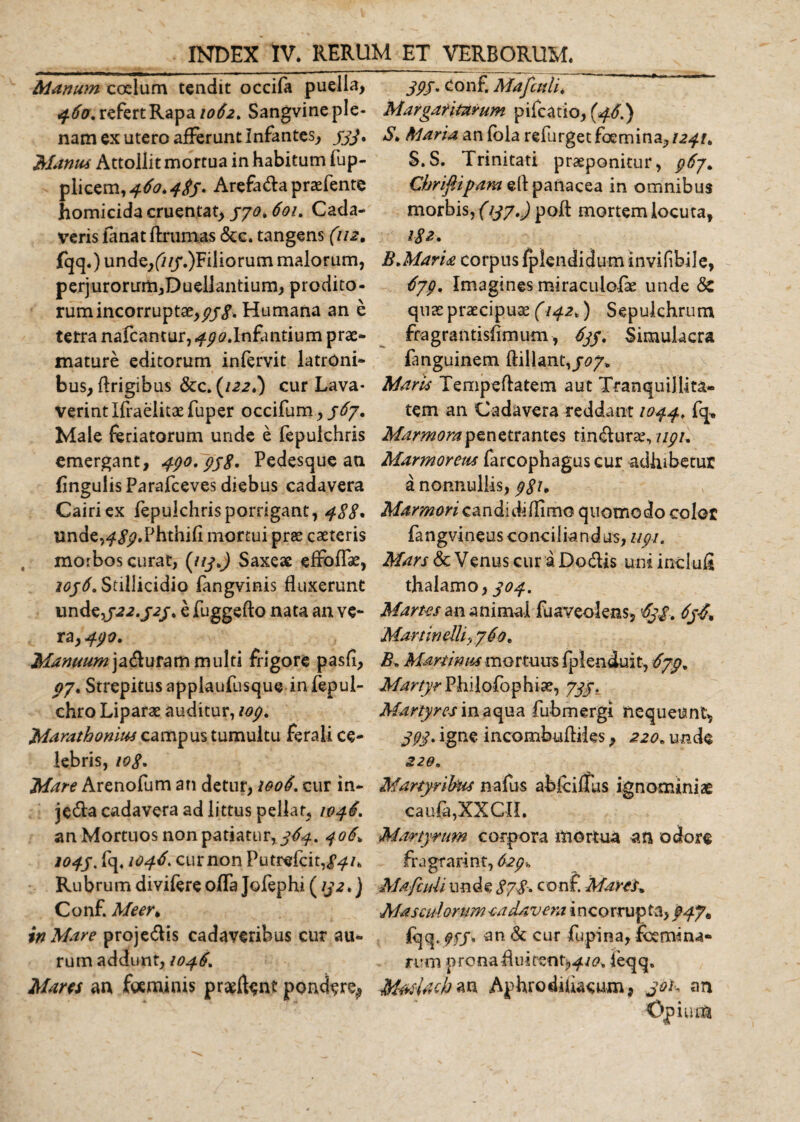 INDEX IV. RERUM ET VERBORUM.
Manum cœlum tendit occiſa puella,
460. refert Rapa 1062. Sangvine ple-
nam ex utero afferunt Infantes, 533.
Manus Attollit mortua in habitum ſup-
plicem, 460. 485. Arefacta præſente
homicida cruentat, 570. 601. Cada-
veris ſanat ſtrumas &c. tangens (112.
ſqq.) unde, (115.) Filiorum malorum,
perjurorum, Duellantium, prodito-
rum incorruptæ, 958. Humana an è
terra naſcantur, 490. Infantium præ-
mature editorum inſervit latroni-
bus, ſtrigibus &c. (122.) cur Lava-
verint Iſraëlitæ ſuper occiſum, 567.
Male feriatorum unde è ſepulchris
emergant, 490. 958. Pedesque an
ſingulis Paraſceves diebus cadavera
Cairi ex ſepulchris porrigant, 488.
unde, 489. Phthiſi mortui præ cæteris
morbos curat, (113.) Saxeæ effoſſæ,
1056. Stillicidio ſangvinis fluxerunt
unde, 522. 525. è ſuggeſto nata an ve-
ra, 490.
Manuum jacturam multi frigore pasſi,
97. Strepitus applauſusque in ſepul-
chro Liparæ auditur, 109.
Marathonius campus tumultu ferali ce-
lebris, 108.
Mare Arenoſum an detur, 1006. cur in-
jecta cadavera ad littus pellat, 1046.
an Mortuos non patiatur, 364. 406.
1045. ſq. 1046. cur non Putreſcit, 841.
Rubrum diviſere oſſa Joſephi (132.)
Conf. Meer.
in Mare projectis cadaveribus cur au-
rum addunt, 1046.
Mares an fœminis præſtent pondere,
395. Conf. Maſculi.
Margaritarum piſcatio, (46.)
S. Maria an ſola reſurget fœmina, 1241.
S.S. Trinitati præponitur, 967.
Chriſtipara eſt panacea in omnibus
morbis, (137.) poſt mortem locuta,
182.
B. Mariæ corpus ſplendidum inviſibile,
679. Imagines miraculoſæ unde &
quæ præcipuæ (142.) Sepulchrum
fragrantisſimum, 635. Simulacra
ſanguinem ſtillant, 507.
Maris Tempeſtatem aut Tranquillita-
tem an Cadavera reddant 1044. ſq.
Marmora penetrantes tincturæ, 1191.
Marmoreus ſarcophagus cur adhibetur
à nonnullis, 981.
Marmori candidiſſimo quomodo color
ſangvineus conciliandus, 1191.
Mars & Venus cur à Doctis uni incluſi
thalamo, 304.
Martes an animal ſuaveolens, 638. 656.
Martinelli, 760.
B. Martinus mortuus ſplenduit, 679.
Martyr Philoſophiæ, 735.
Martyres in aqua ſubmergi nequeunt,
393. igne incombuſtiles, 220. unde
220.
Martyribus naſus abſciſſus ignominiæ
cauſa, XXCII.
Martyrum corpora mortua an odore
fragrarint, 629.
Maſculi unde 878. conf. Mares.
Masculorum cadavera incorrupta, 947.
ſqq. 955. an & cur ſupina, fœmina-
rum prona fluitent, 410. ſeqq.
Maslach an Aphrodiſiacum, 301. an
Opium